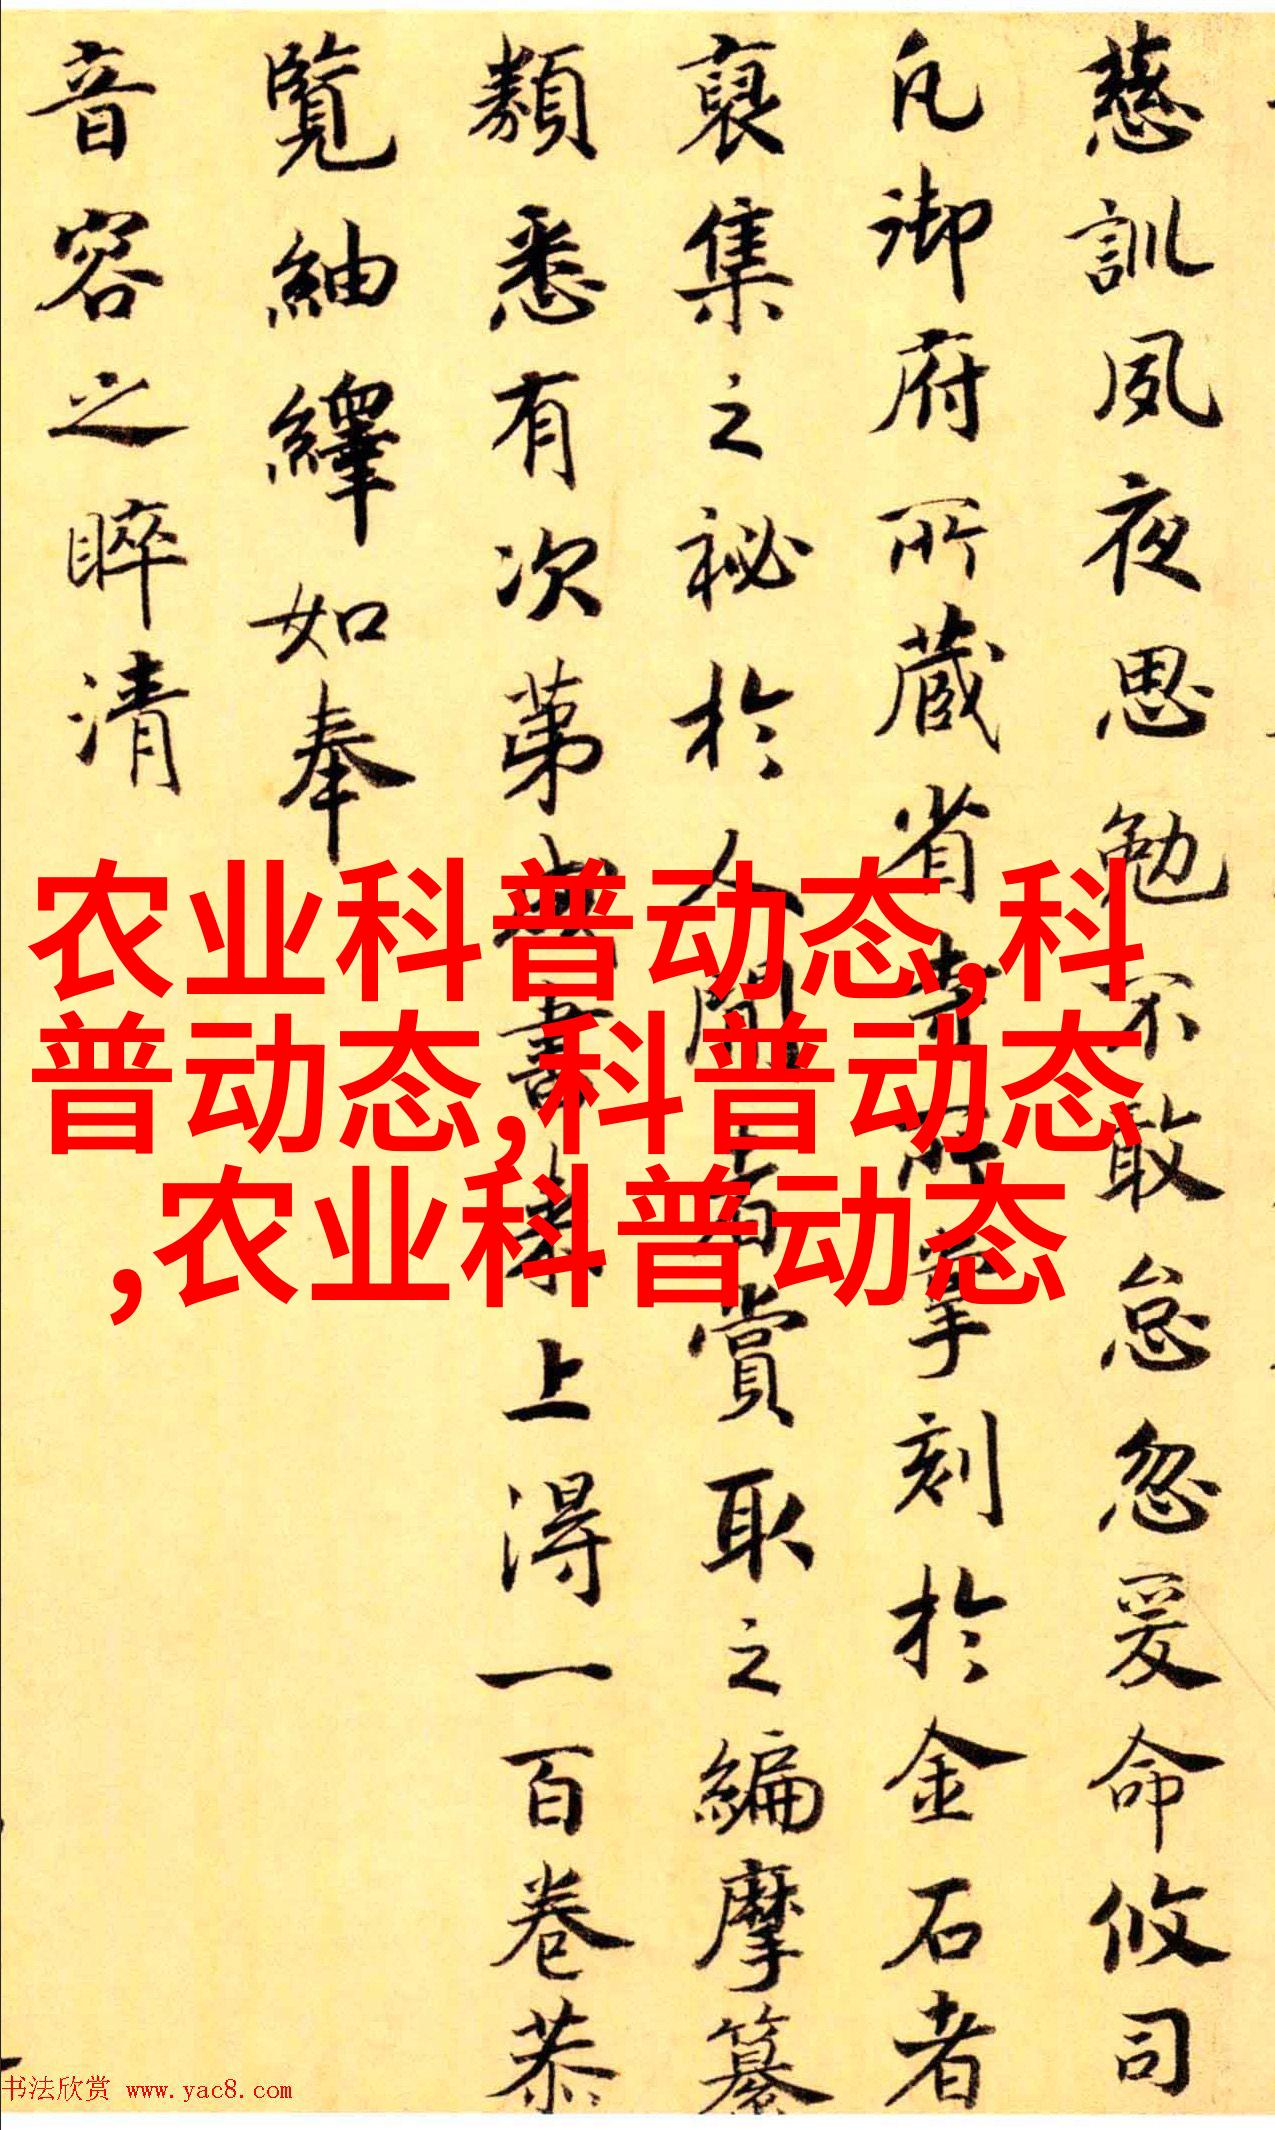 慈訓夙夜思勉不敢怠忽爰命攸司
凡御府所藏省寺所掌刻於金石者
裒集之祕於人間者賞取之編摩纂
類悉有次第書上得一百卷恭
覽紬繹如奉
音容之睟清
农业科普动态,科
普动态,科普动态
,农业科普动态
书法欣赏 www.yac8.com